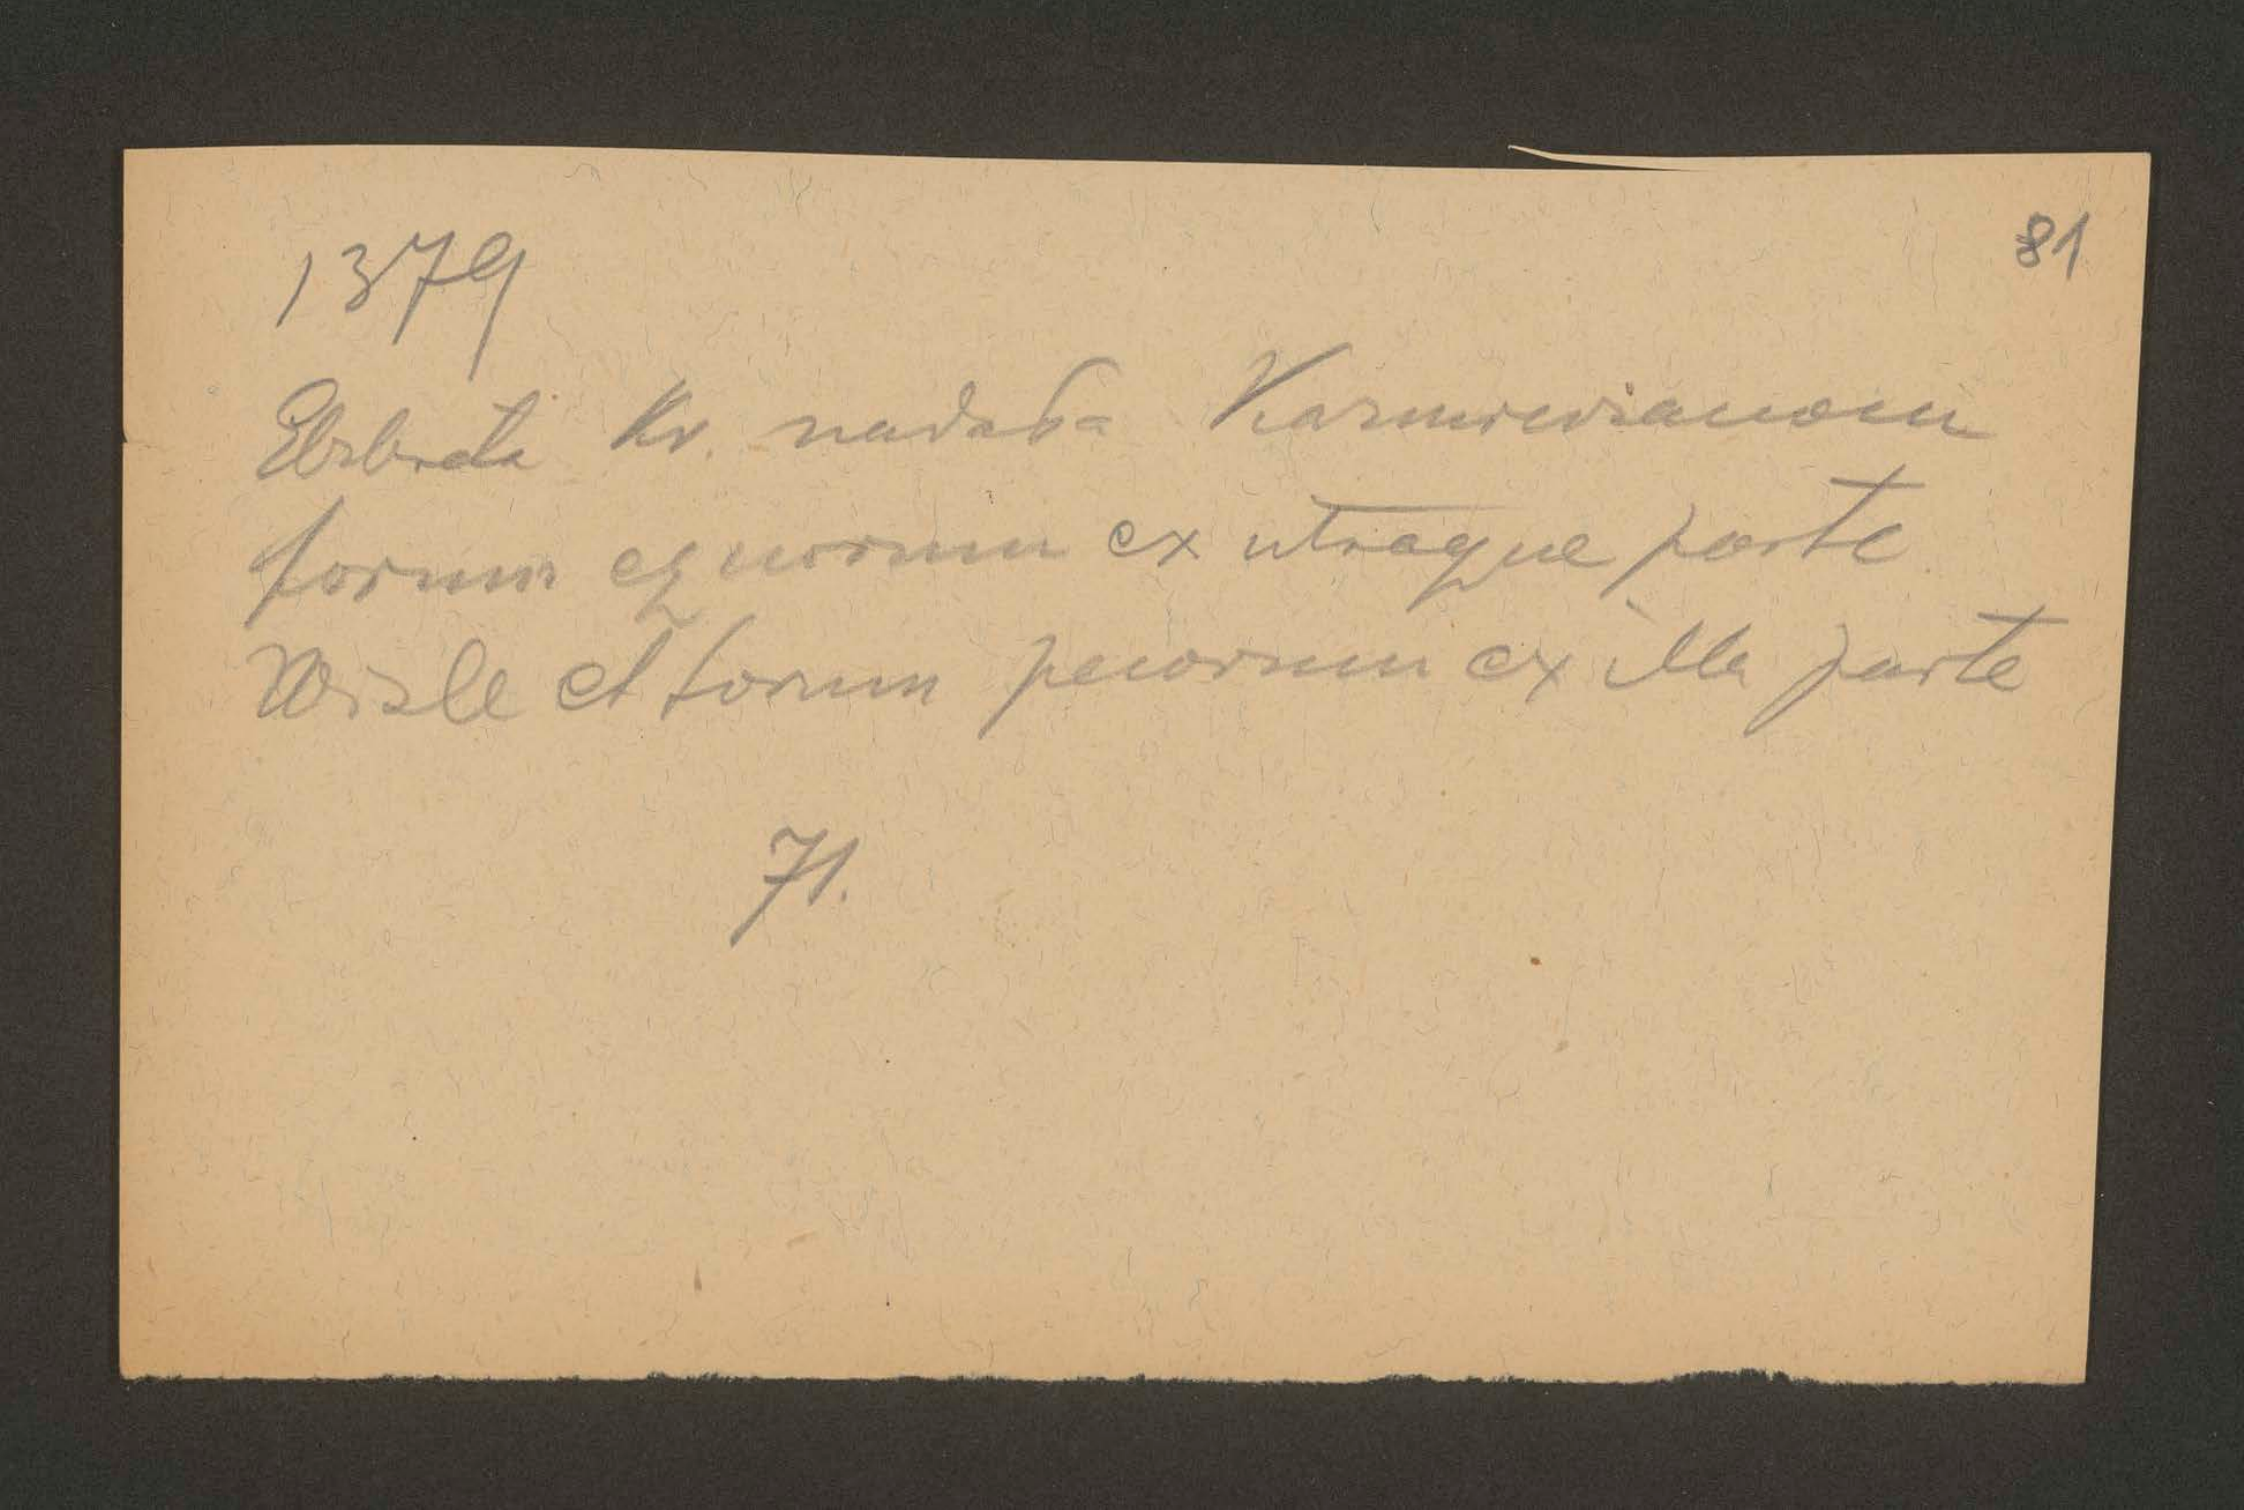 81
1379
Elżbieta Kr. nadała Kazimierzanom
forum equorum ex utraque parte
Wisle et forum pecorum ex illa parte
71.